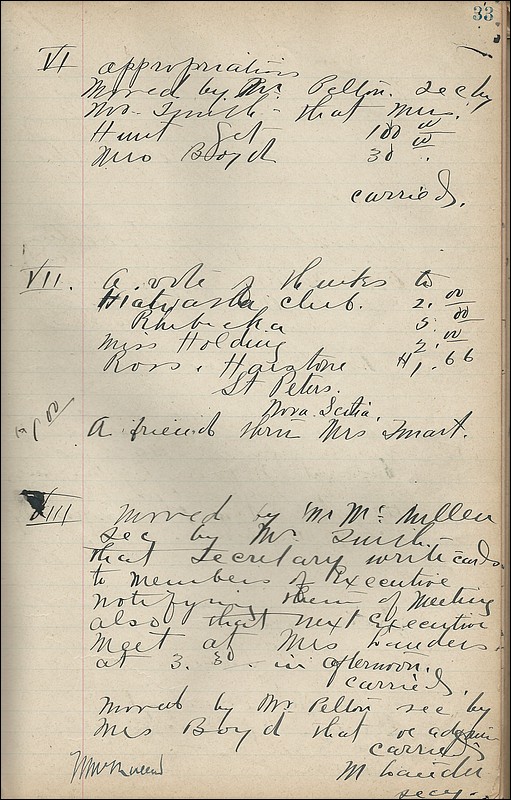 33
VI appropriations
Moved by Mr. Pelton. sec by
Mr. Smith - that Mrs.
Hunt get 100 00
Mrs Boyd 30 00.
carried.
VII. A vote of thanks to
Hiawatha club. 2. 00
Rhebecka 5. 00
Miss Holding 2. 00
Ross. Hairstone 1.66
St Peters.
Nova. Scotia.
5.00
A friend thru Mrs Smart.
VIII Moved by Mr Mc. Millen
sec by Mr Smith
that Secretary write cards.
to members of Executive
notifying them of Meeting
also that next Executive
Meet at Mrs Landers.
at 3. 30 - in afternoon.
carried.
moved by Mr Pelton sec by
Mrs Boyd that we adjourn
carried
M Lander
secy.